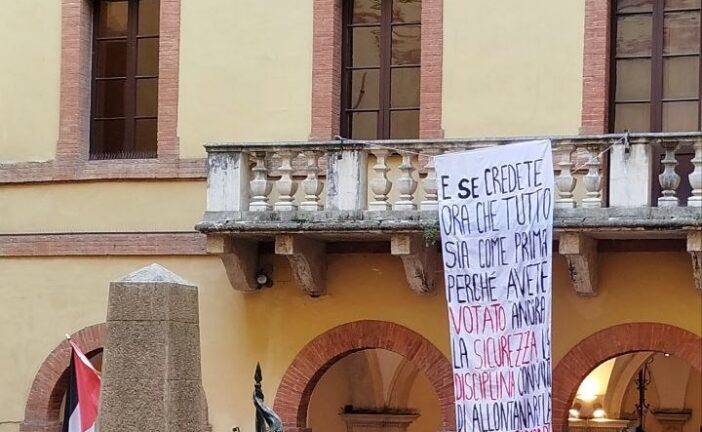 E SE CREDETE
ORA CHE TUTTO
SIA COME PRIMA
PERCHÉ AVETE
VOTATO ANCORA
LA SICUREZZA LA
DISCIPLINA CONVINTI
DI ALLONTANARE LA